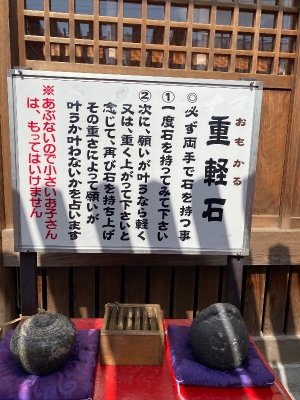 おもかる
重軽石
◎必ず両手で石を持つ事
①一度石を持ってみて下さい
②次に、願いが叶うなら軽く
又は、重く上がって下さいと
念じて、再び石を持ち上げ
その重さによって願いが
叶うか叶わないかを占います
※あぶないので小さいお子さん
は、もってはいけません